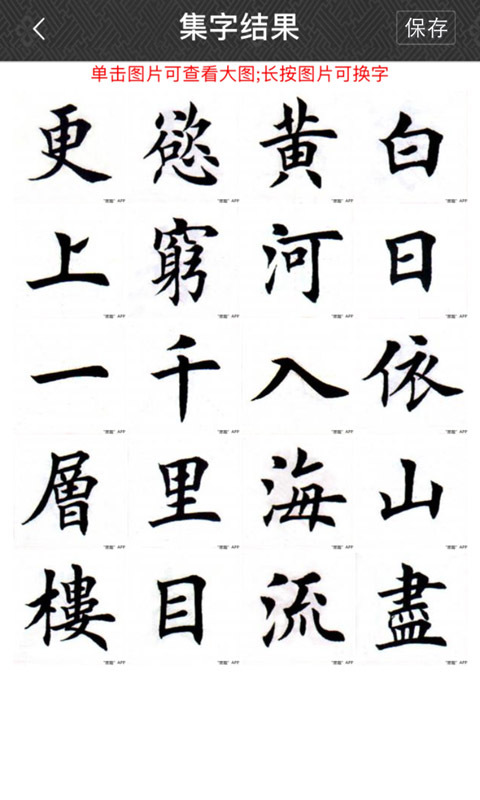 集字结果
保存
单击图片可查看大图;长按图片可换字
白日依山盡
黄河入海流
慾窮千里目
更上一層樓